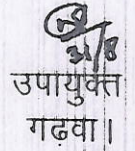 31/8
उपायुक्त
गढ़वा।